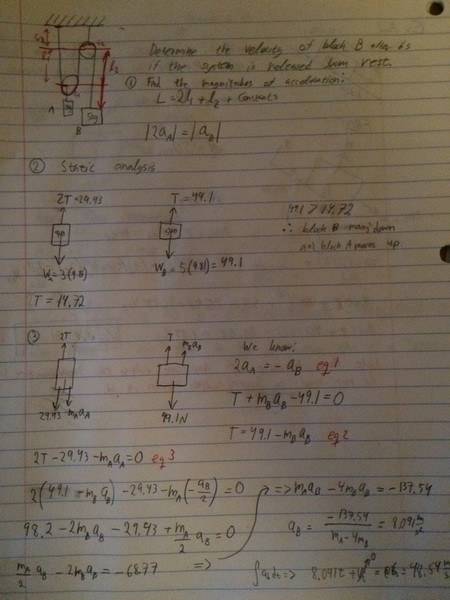 Determine the velocity of block B after 6s
if the system is released from rest.
① Find the magnitudes of acceleration:
L = 2l₁ + l₂ + constants
|2a_A| = |a_B|
l₂
A
B
5kg
② Static analysis
2T = 29.43
T = 49.1
W_A = 3(9.81)
W_B = 5(9.81) = 49.1
T = 14.72
49.1 > 14.72
∴ block B moves down
and block A moves up
③
2T
29.43
m_A a_A
T
m_B a_B
49.1N
We know:
2a_A = -a_B eq 1
T + m_B a_B - 49.1 = 0
T = 49.1 - m_B a_B eq 2
2T - 29.43 - m_A a_A = 0 eq 3
2(49.1 - m_B a_B) - 29.43 - m_A(-a_B/2) = 0
98.2 - 2m_B a_B - 29.43 + m_A/2 a_B = 0
m_A/2 a_B - 2m_B a_B = -68.77 =>
=> m_A a_B - 4m_B a_B = -137.54
a_B = -137.54/(m_A - 4m_B) = 8.091 m/s²
=> 8.091t
= 48.54 m/s